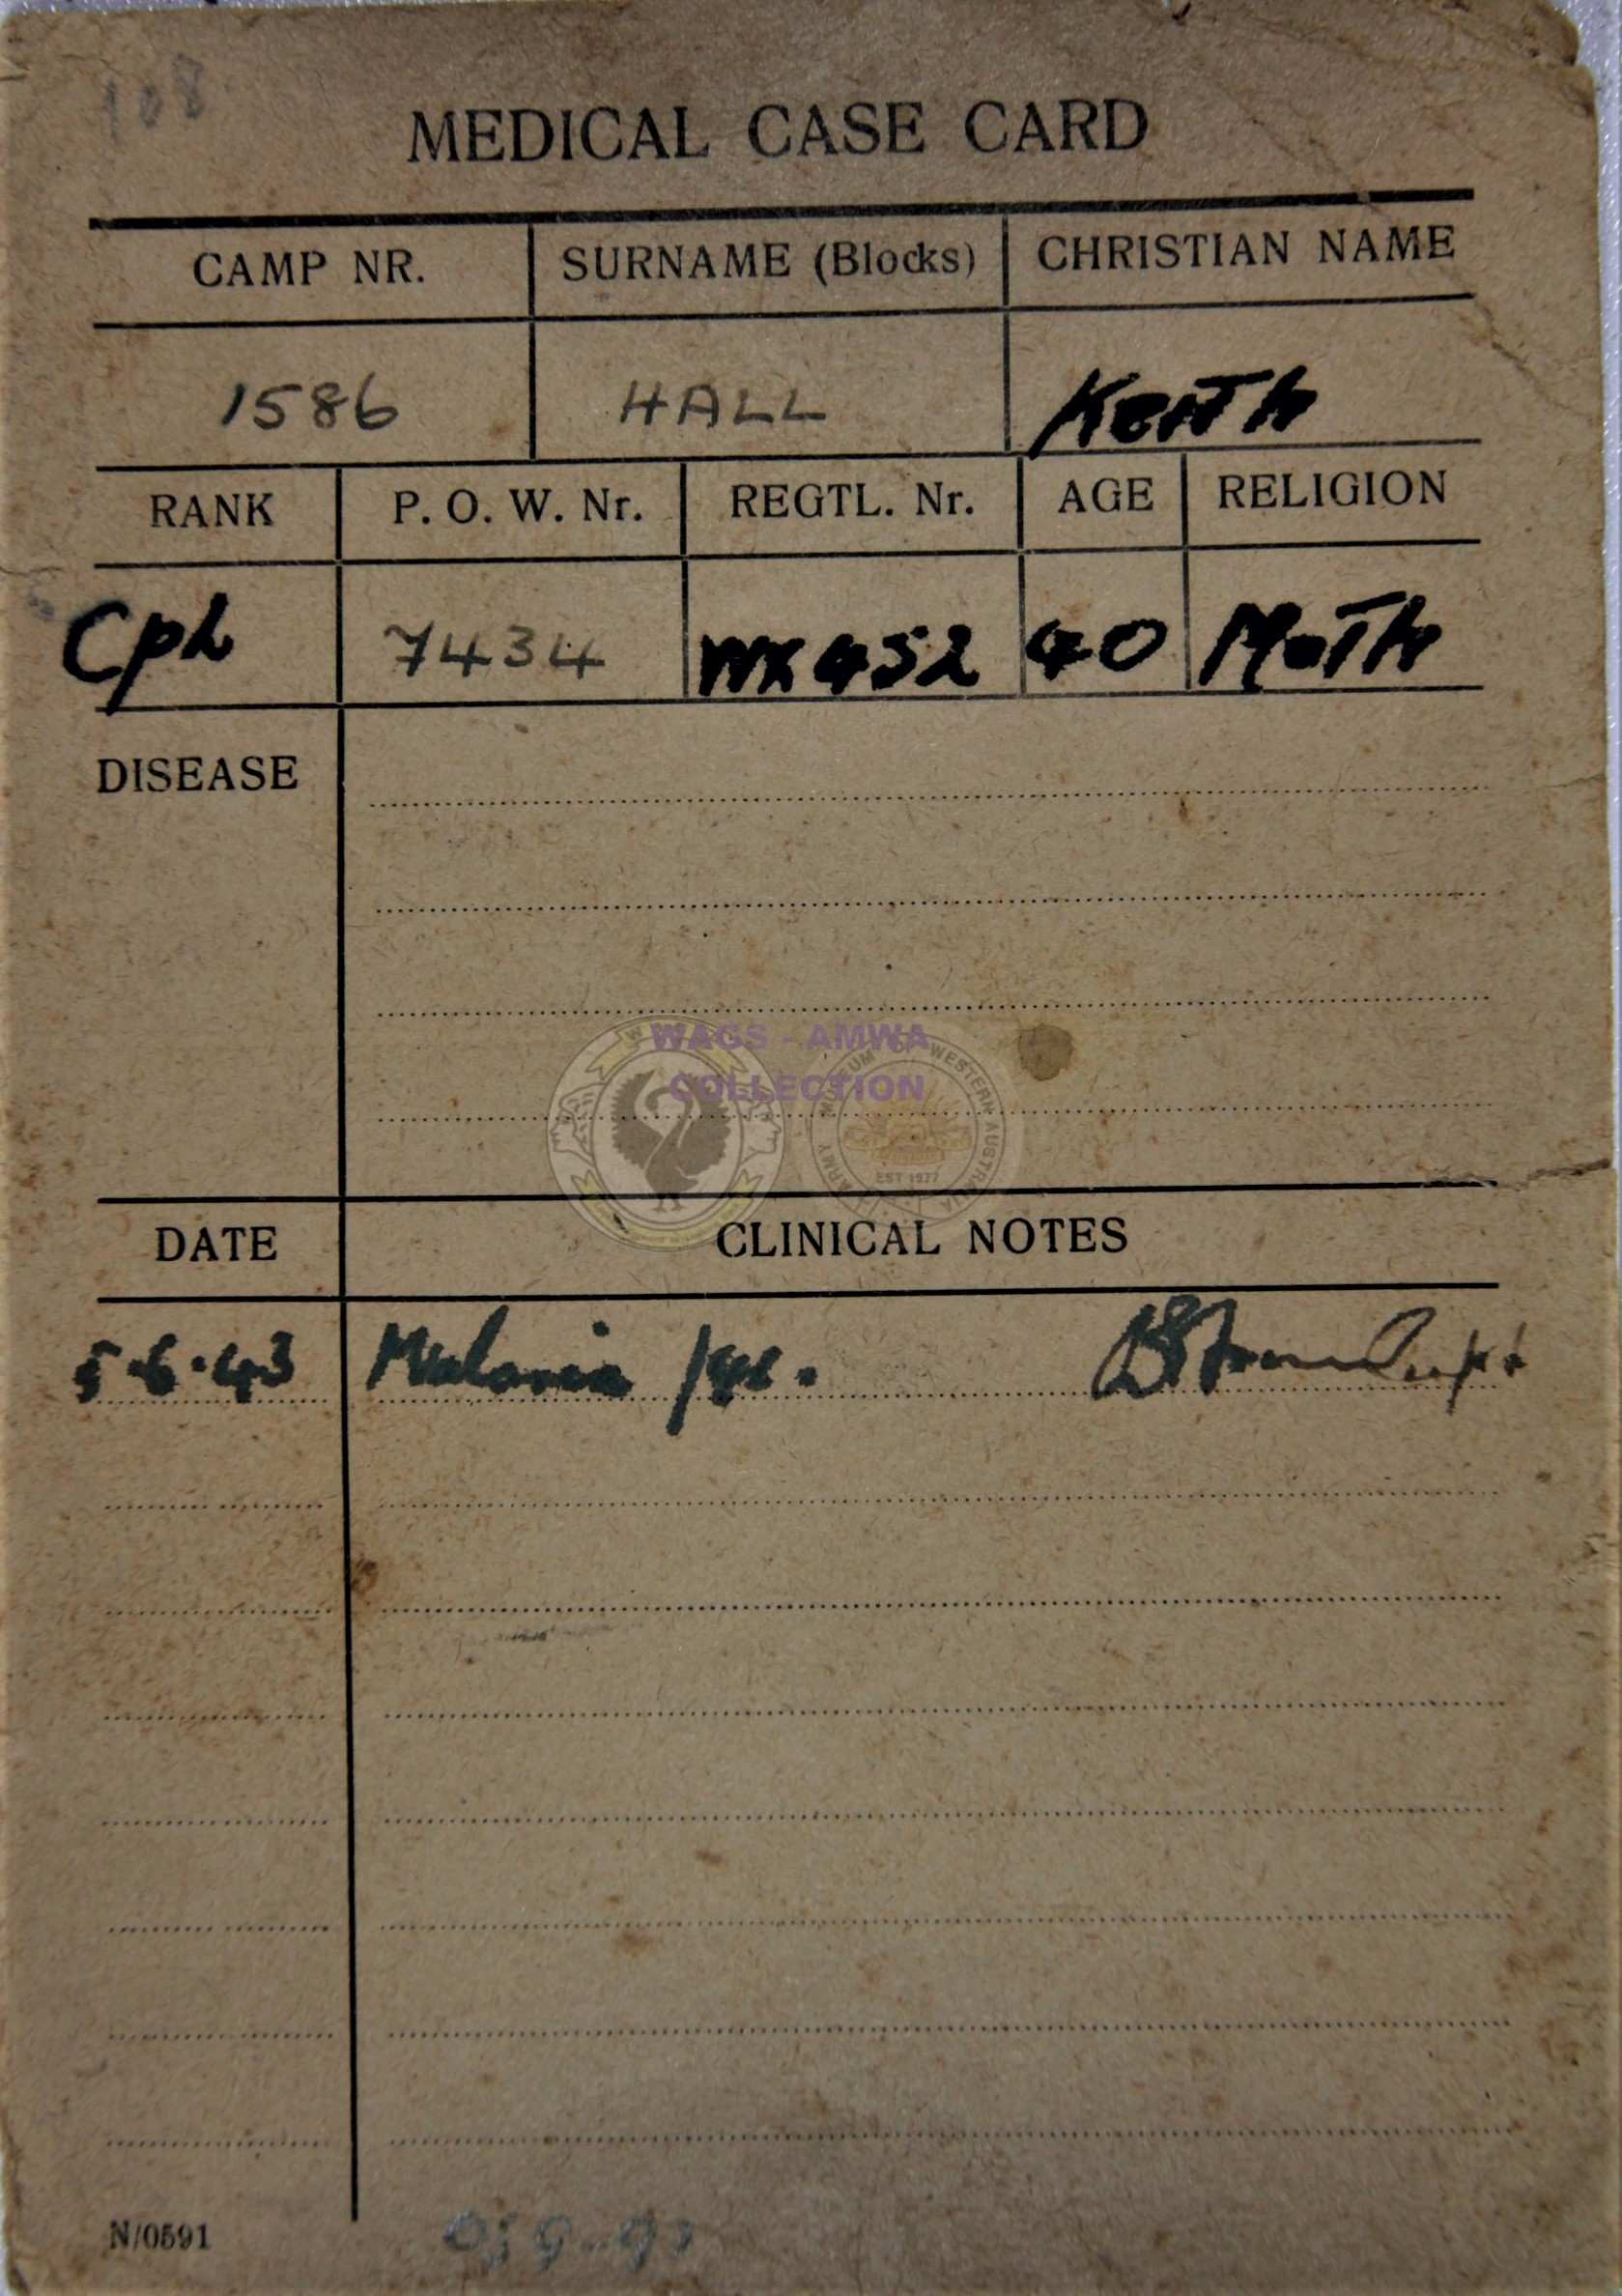 108
MEDICAL CASE CARD
CAMP NR. SURNAME (Blocks) CHRISTIAN NAME
1586 HALL Keith
RANK P. O. W. Nr. REGTL. Nr. AGE RELIGION
Cpl 7434 WX452 40 Meth
DISEASE
WAGS - AMWA
COLLECTION
WESTERN AUSTRALIA
ARMY
EST 1977
DATE CLINICAL NOTES
5.6.43 Malaria Capt
N/0591